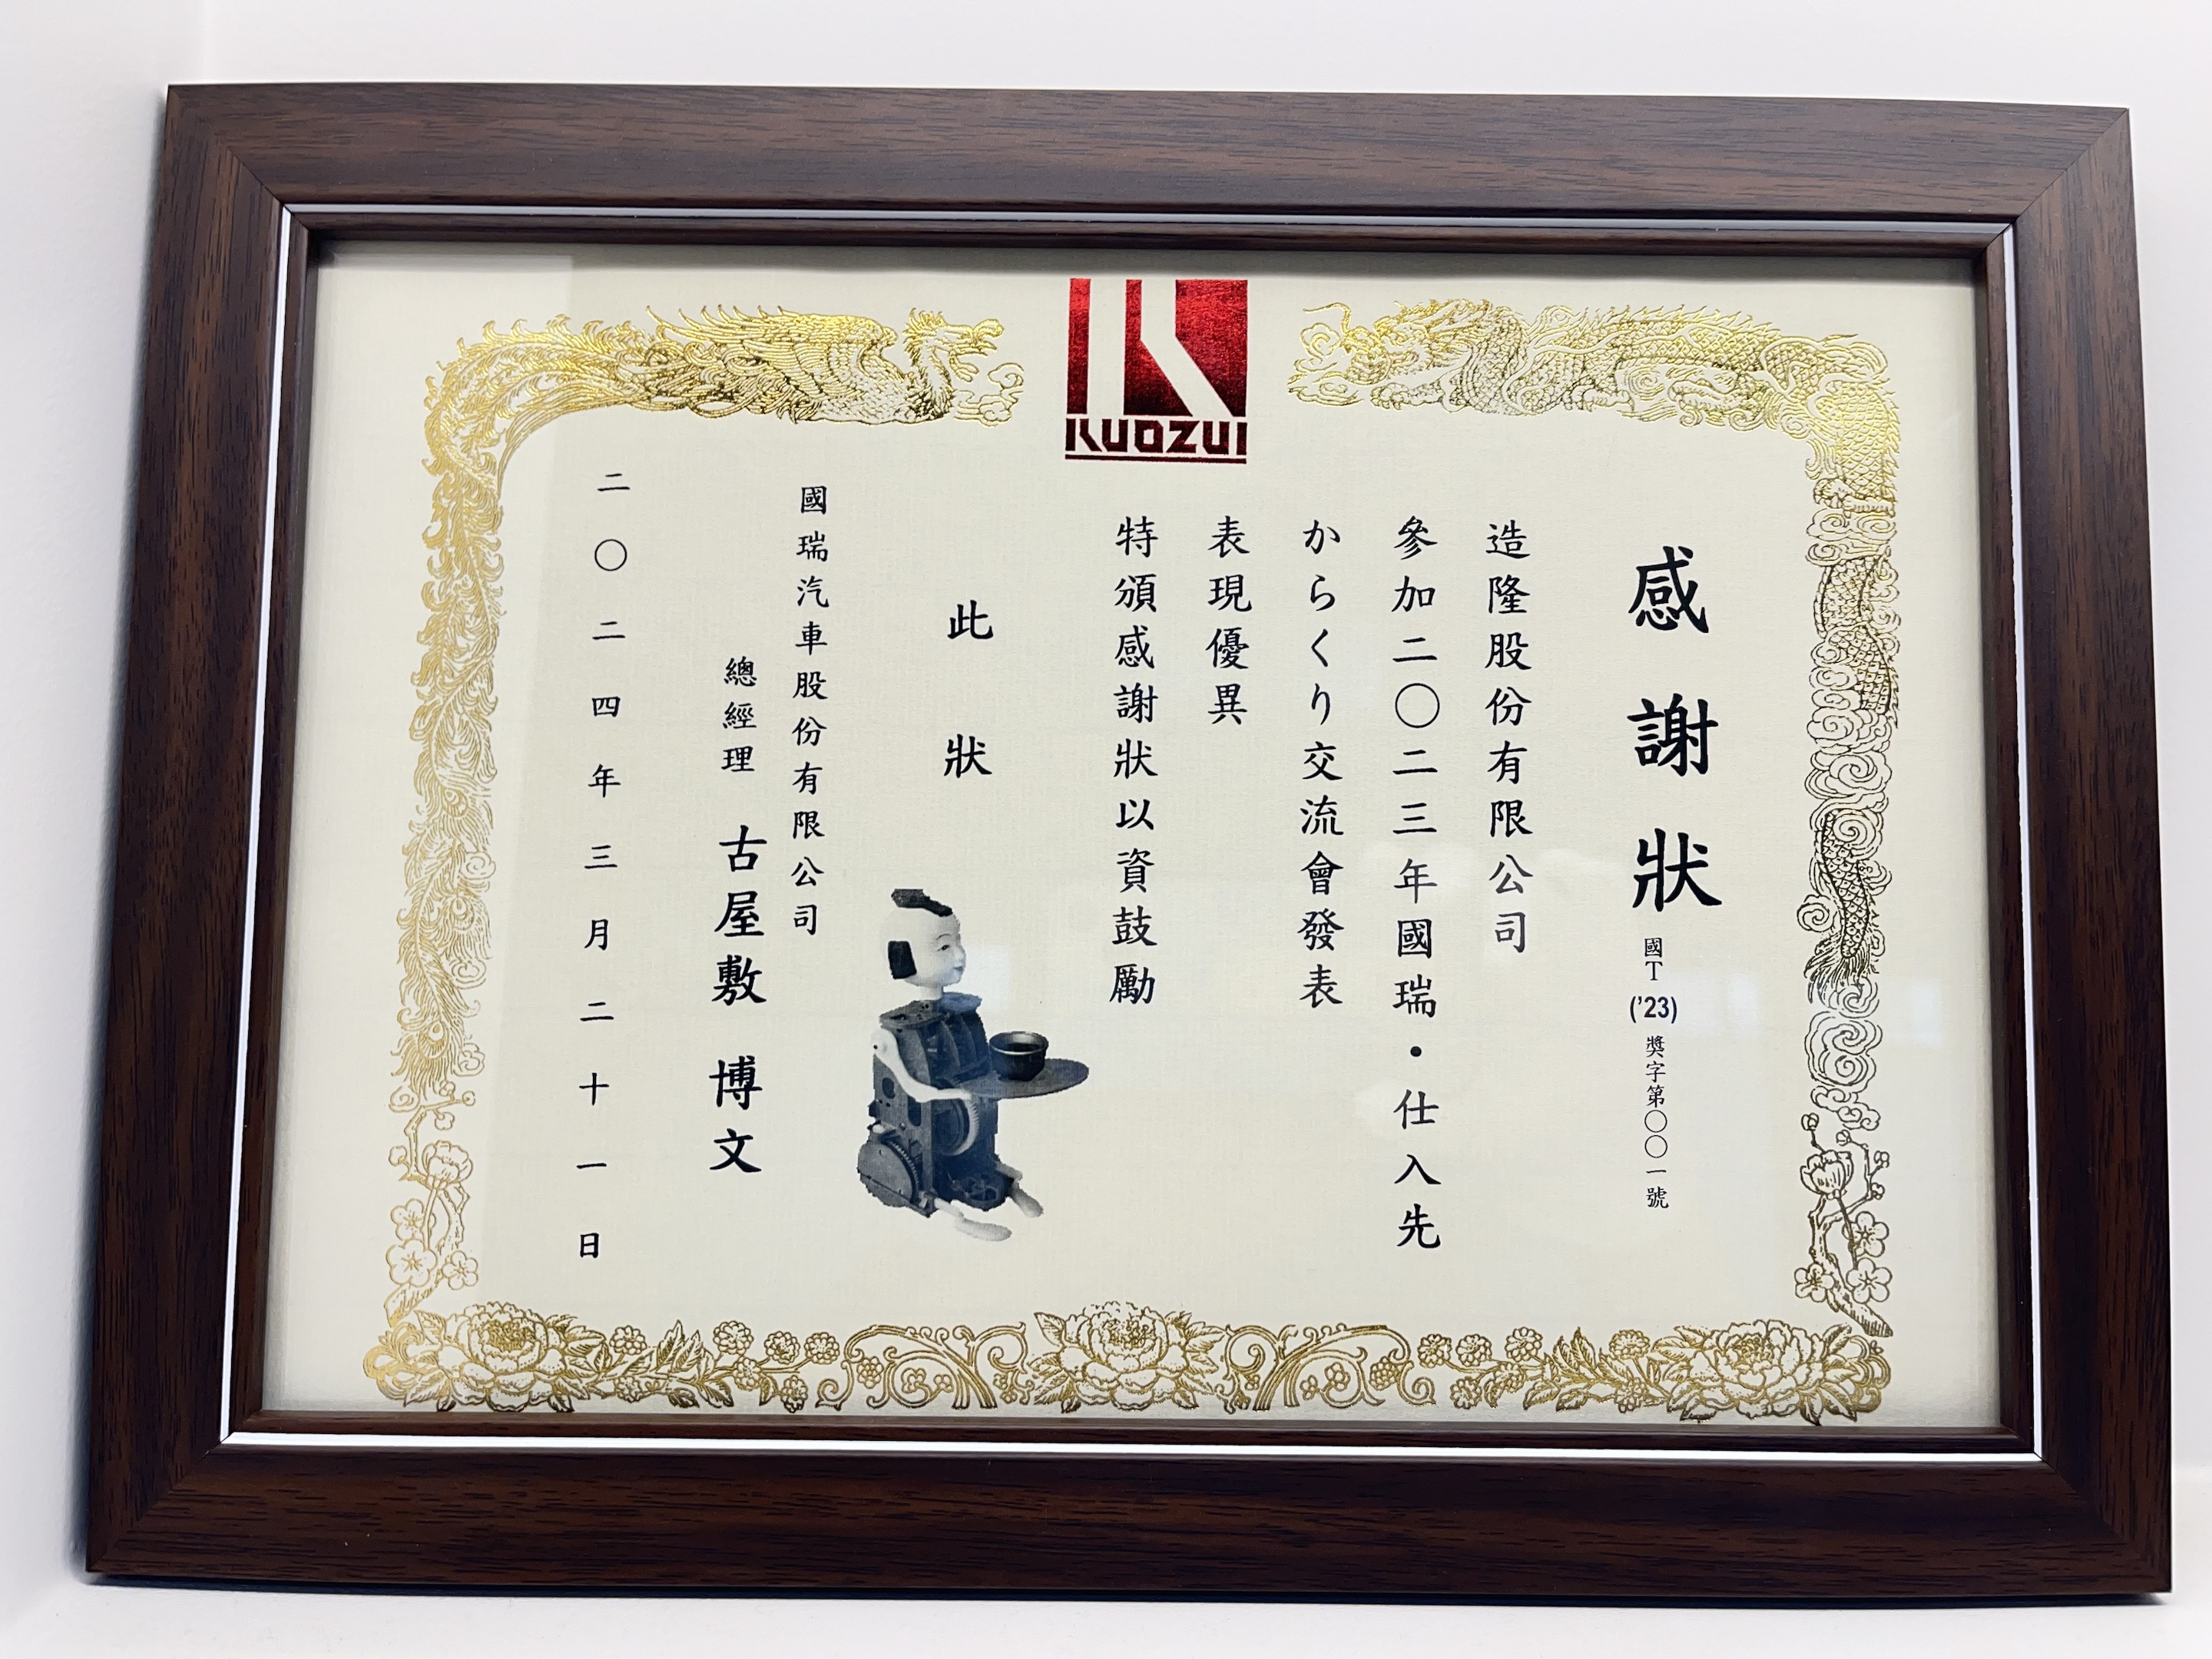 KUOZUI
感謝狀
國T('23)獎字第〇〇一號
造隆股份有限公司
參加二〇二三年國瑞・仕入先
からくり交流會發表
表現優異
特頒感謝狀以資鼓勵
此狀
國瑞汽車股份有限公司
總經理 古屋敷 博文
二〇二四年三月二十一日